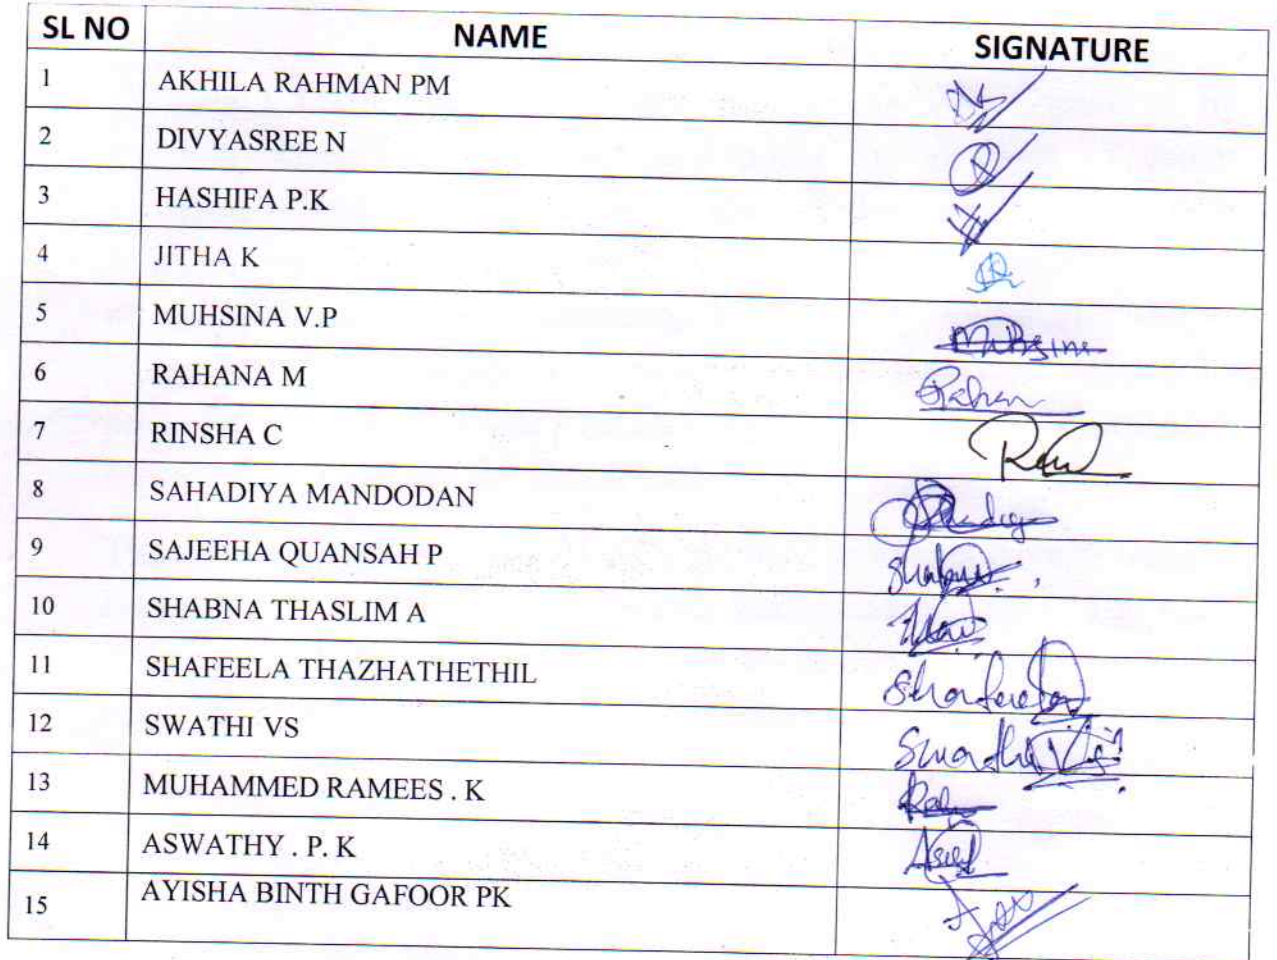 SL NO NAME SIGNATURE
1 AKHILA RAHMAN PM
2 DIVYASREE N
3 HASHIFA P.K
4 JITHA K
5 MUHSINA V.P Muhsina
6 RAHANA M
7 RINSHA C
8 SAHADIYA MANDODAN
9 SAJEEHA QUANSAH P
10 SHABNA THASLIM A
11 SHAFEELA THAZHATHETHIL Shafeela
12 SWATHI VS Swathi VS
13 MUHAMMED RAMEES . K
14 ASWATHY . P. K
15 AYISHA BINTH GAFOOR PK